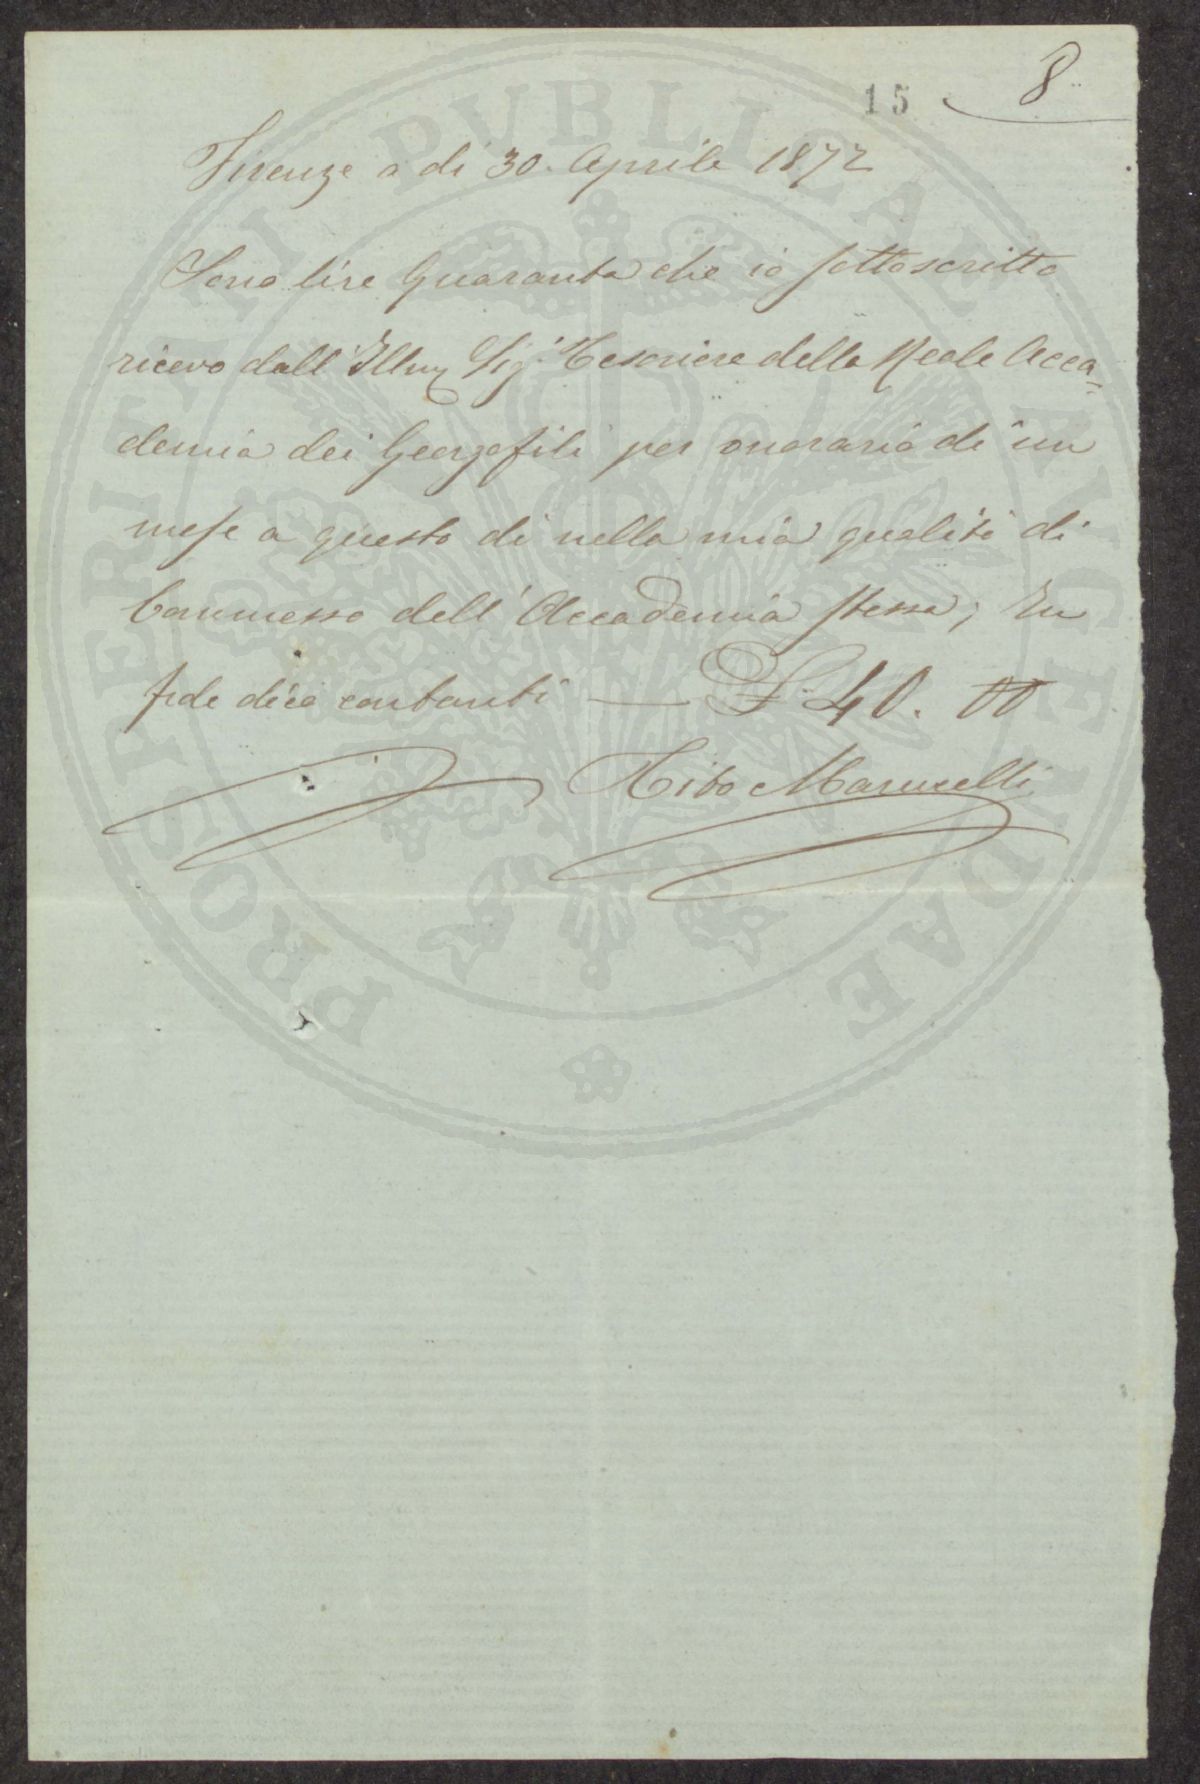 15 8
Firenze a dì 30. Aprile 1872
Sono lire Quaranta che io sottoscritto
ricevo dall' Illm Sig. Tesoriere della Reale Acca=
demia dei Georgofili per onorario di un
mese a questo dì nella mia qualità di
Commesso dell' Accademia stessa; In
fede dico contanti — £ 40. 00
Tito Marucelli
PROSPERITATI PVBLICAE AVGENDAE